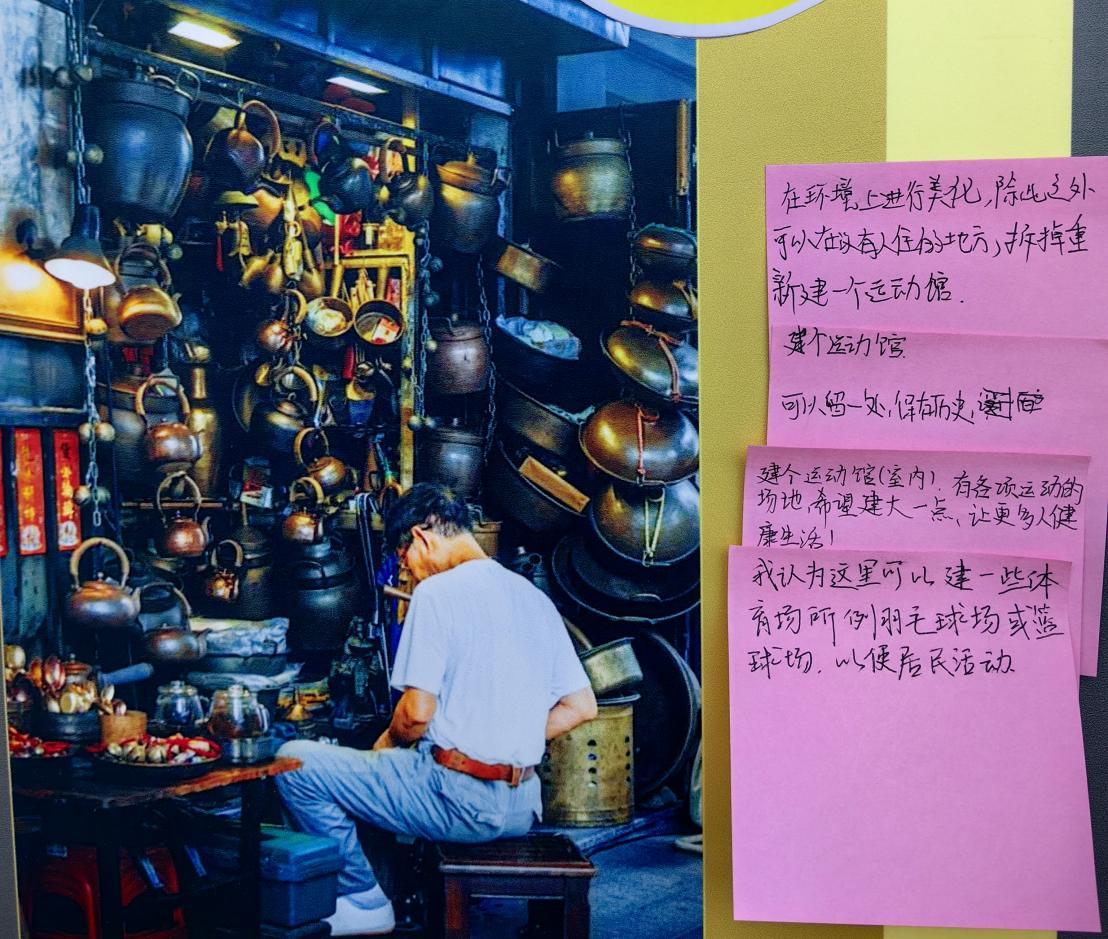 在环境上进行美化,除此之外
可以在没有人住的地方,拆掉重
新建一个运动馆.
建个运动馆
可以留一处,保存历史,
建个运动馆(室内).有各项运动的
场地,希望建大一点,让更多人健
康生活!
我认为这里可以建一些体
育场所例羽毛球场或篮
球场.以便居民活动.